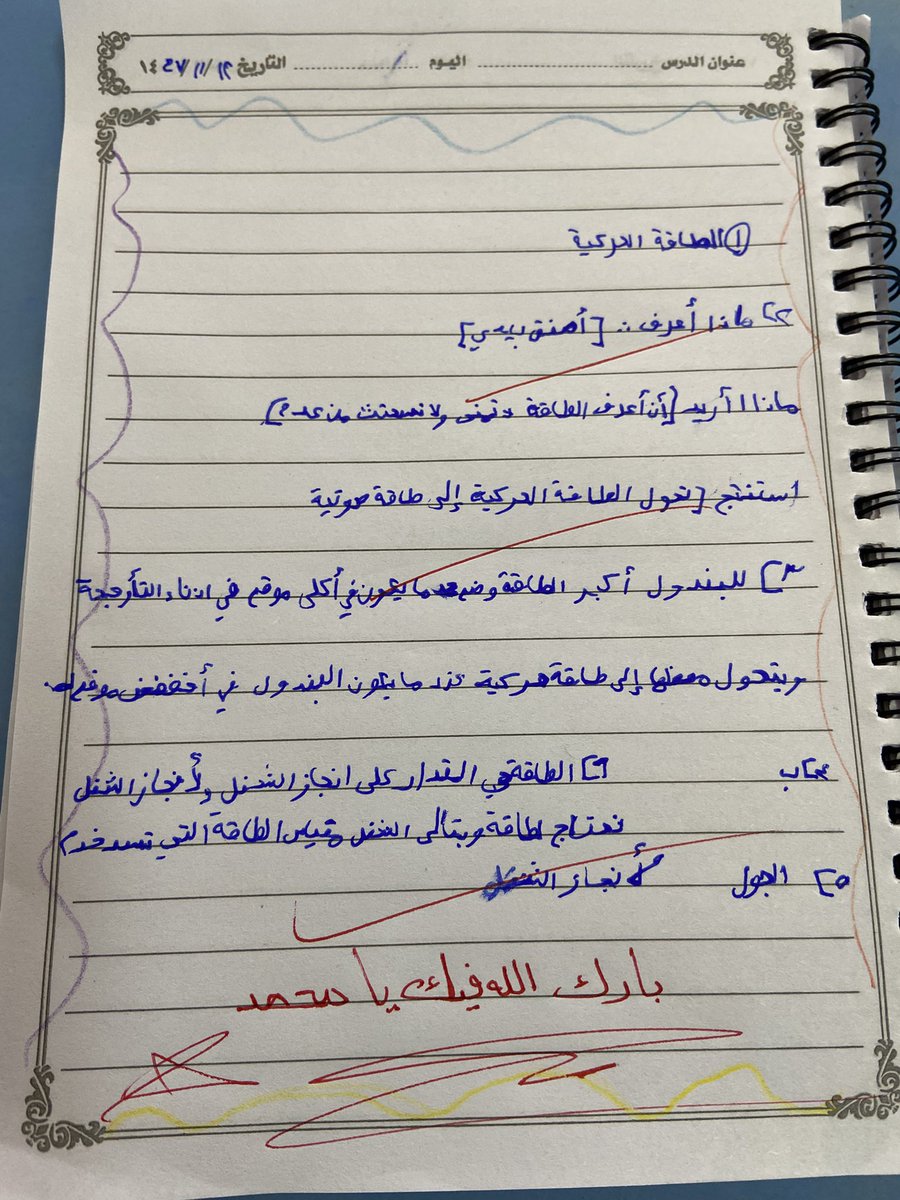 عنوان الدرس ............ اليوم ............ التاريخ ١٢/١١/١٤٤٧
① الطاقة الحركية
٢] ماذا أعرف :. [أصفق بيدي]
ماذا أريد [أن أعرف الطاقة لا تفنى ولا تستحدث من عدم]
استنتج [تحول الطاقة الحركية إلى طاقة صوتية
٣] للبندول أكبر الطاقة وضع عندما يكون في أعلى موقع في اثناء التأرجحة
ويتحول معضها إلى طاقة حركية عندما يكون البندول في أخفض موقع له.
٤] الطاقة هي المقدار على انجاز الشغل ولأنجاز الشغل
نحتاج لطاقة وبتالى الشغل مقياس الطاقة التي تستخدم
لأنجاز الشغل
٥] الجول
بارك الله فيك يا محمد